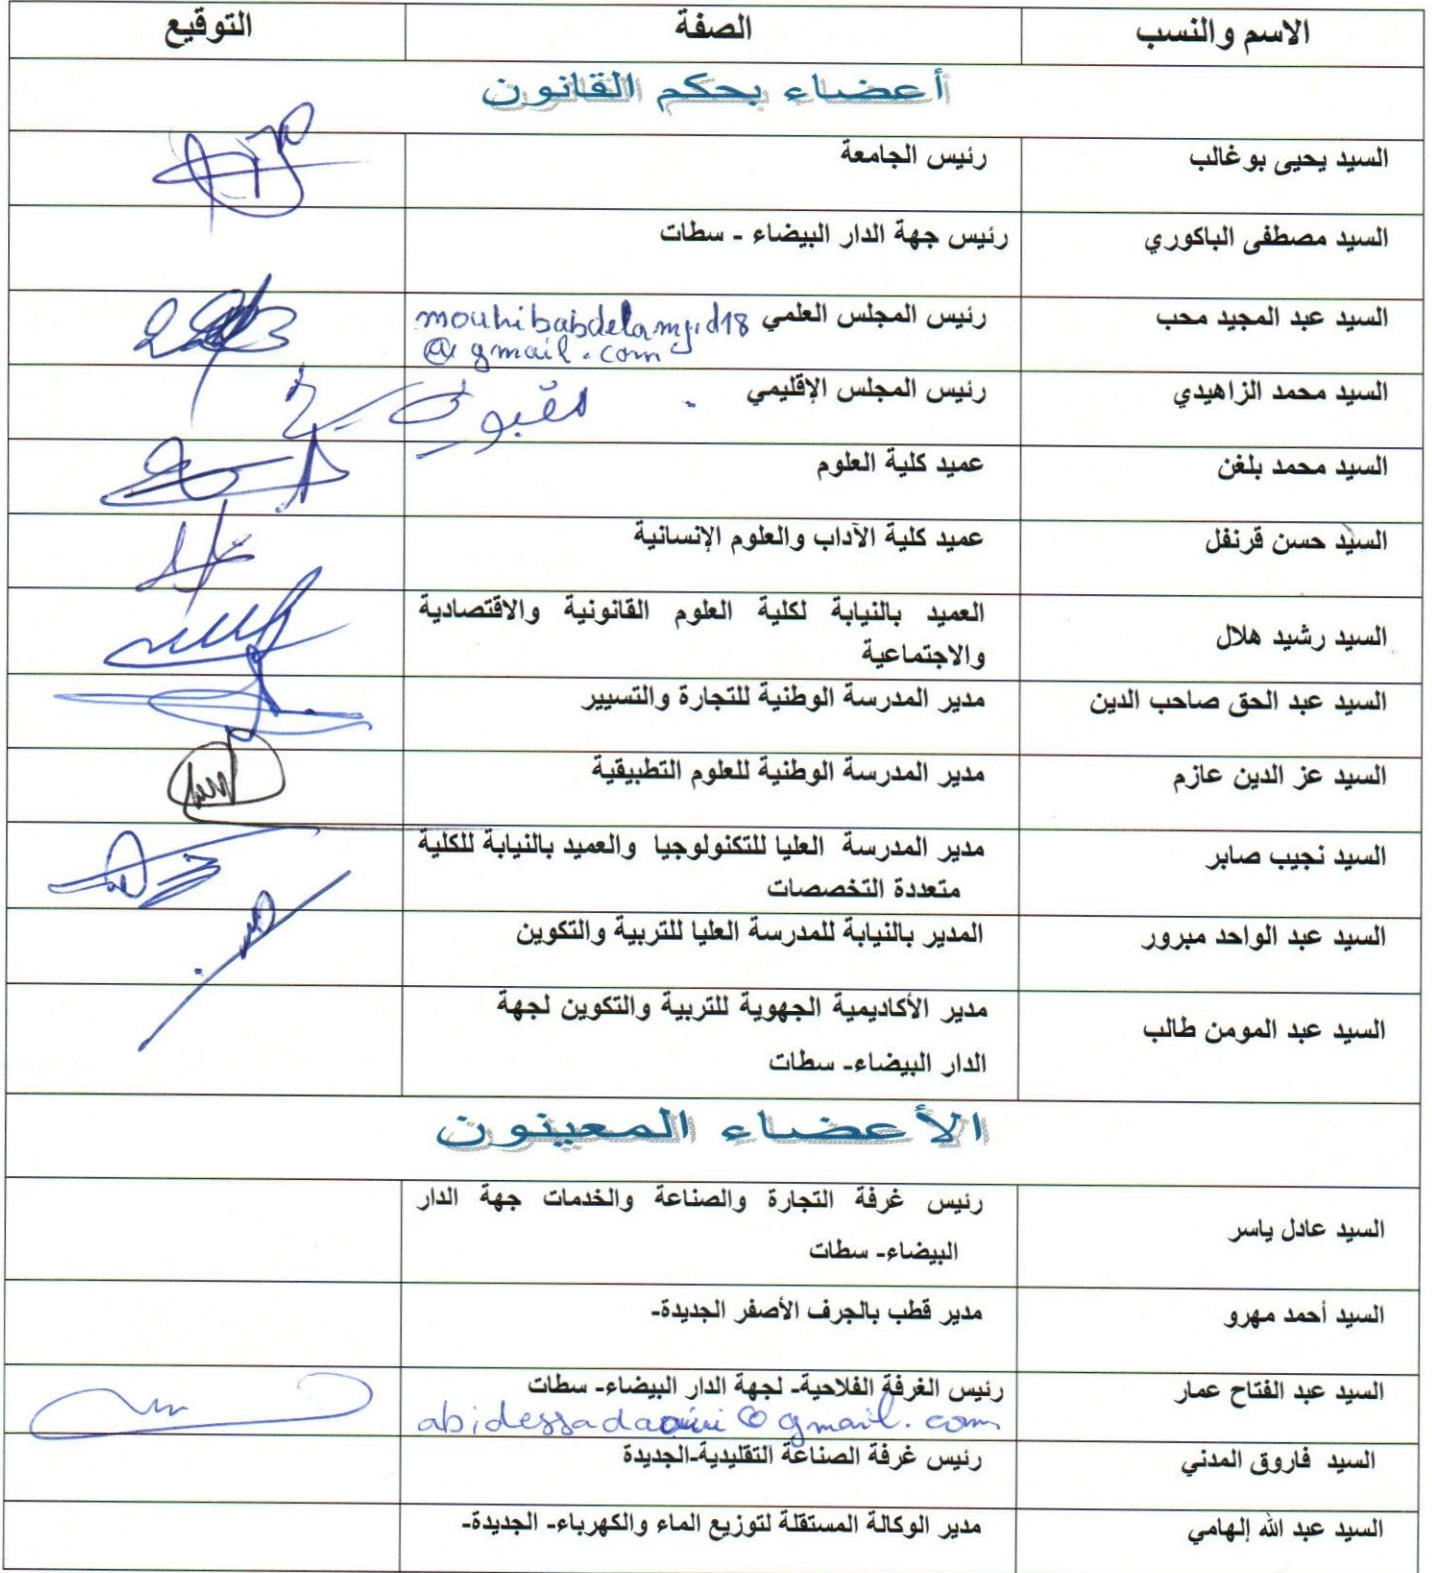 الاسم والنسب	الصفة	التوقيع
أعضاء بحكم القانون
السيد يحيى بوغالب	رئيس الجامعة
السيد مصطفى الباكوري	رئيس جهة الدار البيضاء - سطات
السيد عبد المجيد محب	رئيس المجلس العلمي mouhibabdelamjid18
@gmail.com
السيد محمد الزاهيدي	رئيس المجلس الإقليمي
السيد محمد بلغن	عميد كلية العلوم
السيد حسن قرنفل	عميد كلية الآداب والعلوم الإنسانية
السيد رشيد هلال	العميد بالنيابة لكلية العلوم القانونية والاقتصادية
والاجتماعية
السيد عبد الحق صاحب الدين	مدير المدرسة الوطنية للتجارة والتسيير
السيد عز الدين عازم	مدير المدرسة الوطنية للعلوم التطبيقية
السيد نجيب صابر	مدير المدرسة العليا للتكنولوجيا والعميد بالنيابة للكلية
متعددة التخصصات
السيد عبد الواحد مبرور	المدير بالنيابة للمدرسة العليا للتربية والتكوين
السيد عبد المومن طالب	مدير الأكاديمية الجهوية للتربية والتكوين لجهة
الدار البيضاء- سطات
الأعضاء المعينون
السيد عادل ياسر	رئيس غرفة التجارة والصناعة والخدمات جهة الدار
البيضاء- سطات
السيد أحمد مهرو	مدير قطب بالجرف الأصفر الجديدة-
السيد عبد الفتاح عمار	رئيس الغرفة الفلاحية- لجهة الدار البيضاء- سطات
السيد فاروق المدني	رئيس غرفة الصناعة التقليدية-الجديدة
السيد عبد الله إلهامي	مدير الوكالة المستقلة لتوزيع الماء والكهرباء- الجديدة-